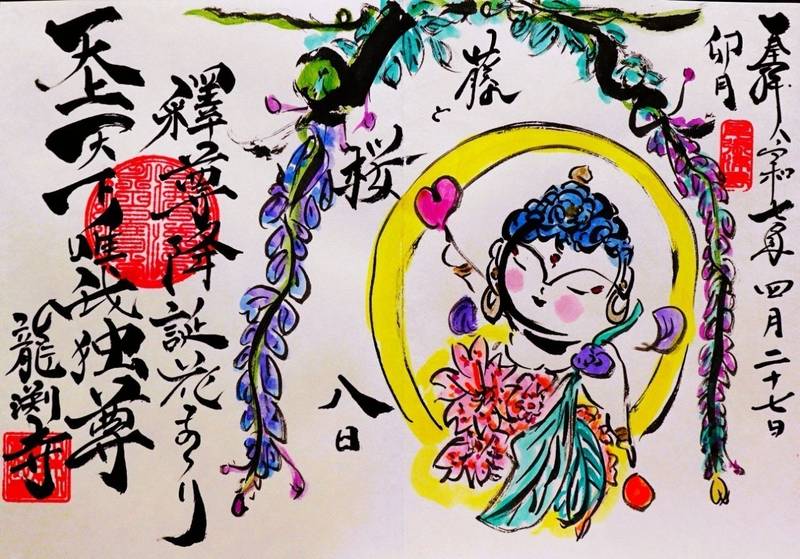 奉拝 令和七年四月二十七日
卯月
八日
藤
と
桜
釋尊降誕花まつり
天上天下唯我独尊
龍渕寺